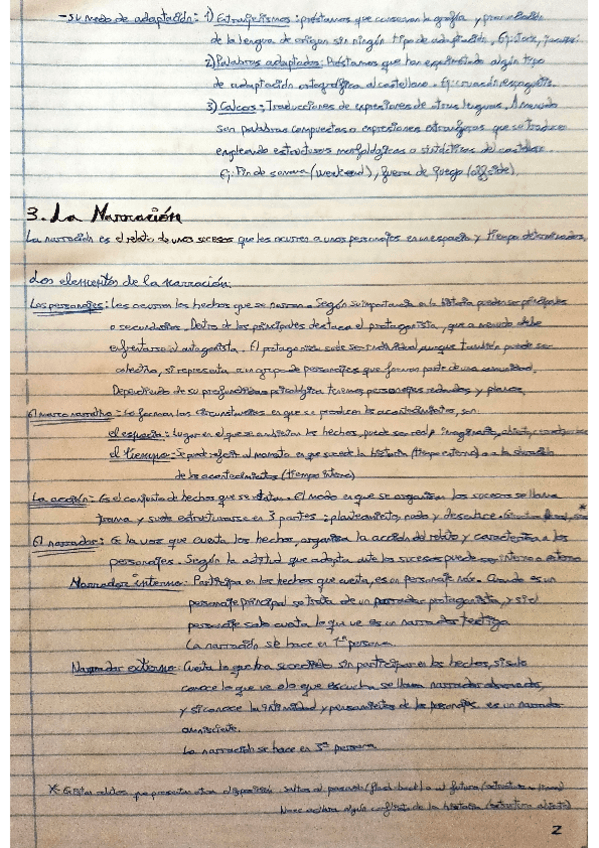 - su modo de adaptación: 1) Extranjerismos: préstamos que conservan la grafía y pronunciación
de la lengua de origen sin ningún tipo de adaptación. Ej: Jazz,
2) Palabras adaptadas: Préstamos que han experimentado algún tipo
de adaptación ortográfica al castellano. Ej: cruasán, espaguetis.
3) Calcos: Traducciones de expresiones de otras lenguas. A menudo
son palabras compuestas o expresiones extranjeras que se traducen
empleando estructuras morfológicas o sintácticas del castellano.
Ej: Fin de semana (weekend), fuera de juego (offside).
3. La Narración
La narración es el relato de unos sucesos que les ocurren a unos personajes en un espacio y tiempo determinados.
Los elementos de la narración
Los personajes: Les ocurren los hechos que se narran. Según su importancia en la historia pueden ser principales
o secundarios. Dentro de los principales destaca el protagonista, que a menudo debe
enfrentarse al antagonista. El protagonista suele ser individual, aunque también puede ser
colectivo, si representa a un grupo de personajes que forman parte de una comunidad.
Dependiendo de su profundidad psicológica tenemos personajes redondos y planos.
El marco narrativo: Lo forman las circunstancias en que se producen los acontecimientos, son:
el espacio: Lugar en el que se ambientan los hechos, puede ser real, imaginario, abierto,
el tiempo: Se puede referir al momento en que sucede la historia (tiempo externo) o a la duración
de los acontecimientos (tiempo interno)
La acción: Es el conjunto de hechos que se relatan. El modo en que se organizan los sucesos se llama
trama, y suele estructurarse en 3 partes: planteamiento, nudo y desenlace. *
El narrador: Es la voz que cuenta los hechos, organiza la acción del relato y caracteriza a los
personajes. Según la actitud que adopta ante los sucesos puede ser interno o externo
Narrador interno: Participa en los hechos que cuenta, es un personaje más. Cuando es un
personaje principal se trata de un narrador protagonista, y si el
personaje solo cuenta lo que ve es un narrador testigo
La narración se hace en 1ª persona
Narrador externo: Cuenta lo que ha sucedido sin participar en los hechos, si solo
conoce lo que ve o lo que escucha se llama narrador observador,
y si conoce la intimidad y pensamientos de los personajes es un narrador
omnisciente.
La narración se hace en 3ª persona
* Existen relatos que presentan otra disposición: saltos al pasado (flash back) o al futuro
Nunc aclara algún conflicto de la historia (estructura abierta)
2